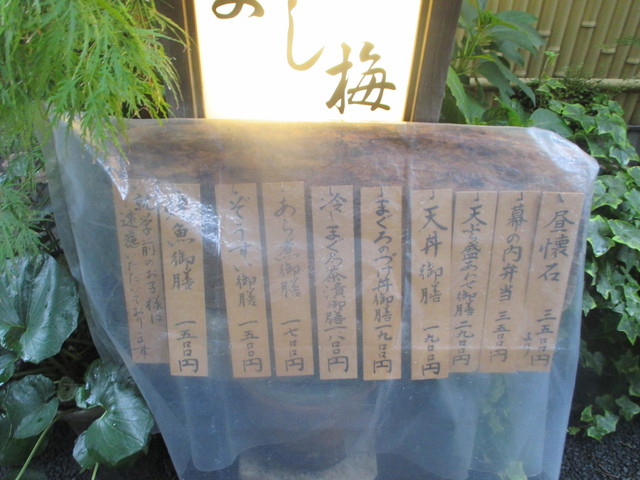 よし梅
昼懐石 三五〇〇円より
幕の内弁当 三五〇〇円
天ぷら盛あわせ御膳 二九〇〇円
天丼御膳 一九〇〇円
まぐろのづけ丼御膳 一九〇〇円
冷やしまぐろ茶漬御膳 一八〇〇円
あら煮御膳 一七〇〇円
ぞうすい御膳 一五〇〇円
焼魚御膳 一五〇〇円
就学前のお子様は
遠慮いただいております